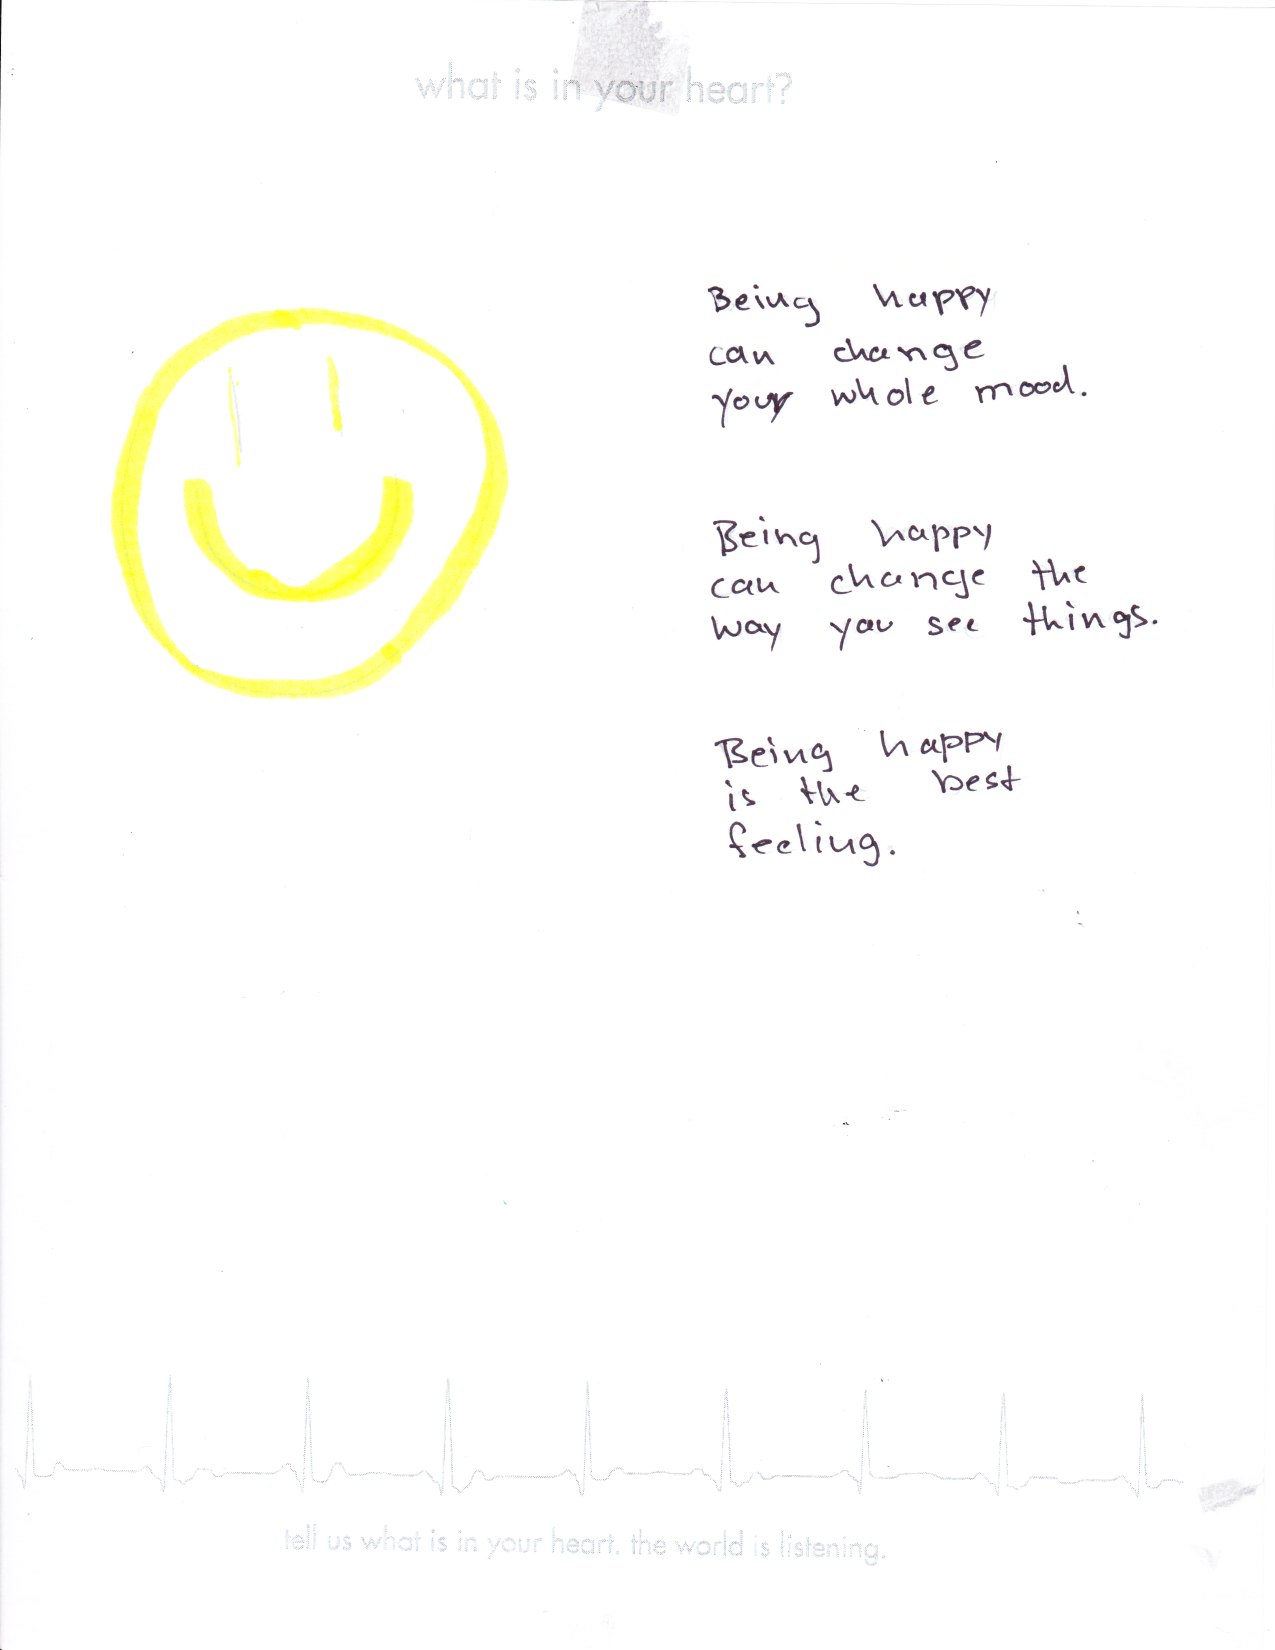 what is in your heart?
Being happy
can change
your whole mood.
Being happy
can change the
way you see things.
Being happy
is the best
feeling.
tell us what is in your heart. the world is listening.